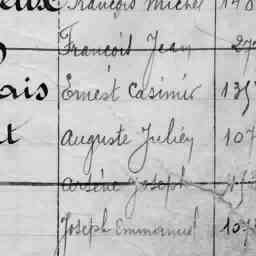 François Michel
François Jean
ais Ernest Casimir
Auguste Julien 107
Arsène Joseph
Joseph Emmanuel 107